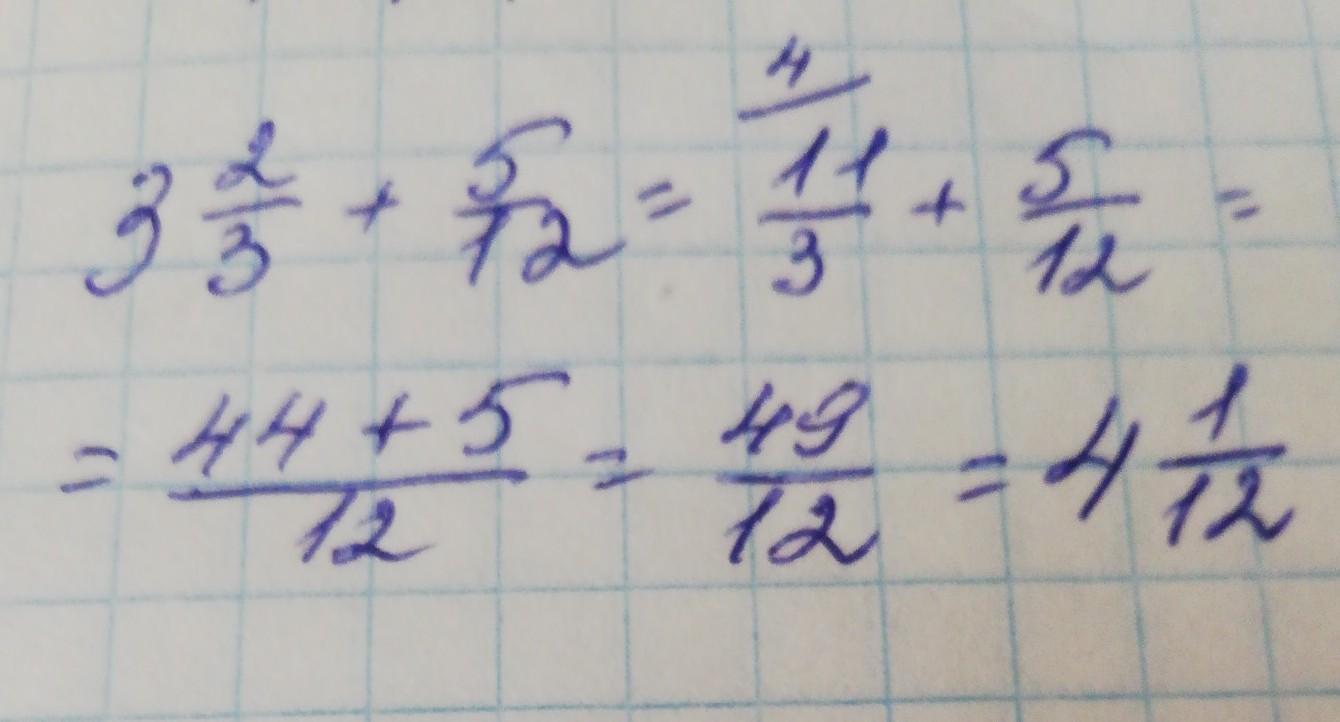 3 2/3 + 5/12 = 4/ 11/3 + 5/12 =
= 44 + 5/12 = 49/12 = 4 1/12